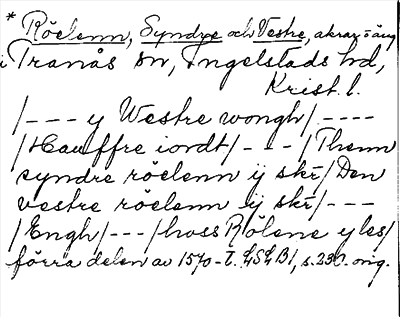 * Röelenn, Syndre och Vestre, akrar o äng
i Tranås sn, Ingelstads hd,
Krist. l.
/--- y Westre wongh/----
/Hauffre iordt/---/Thenn
syndre röelenn ij skr̄/Den
vestre röelenn ij skr̄/---
/Engh/---/hoss Rölene y les/
förra delen av 1570-t. LSLB1, s. 230. orig.